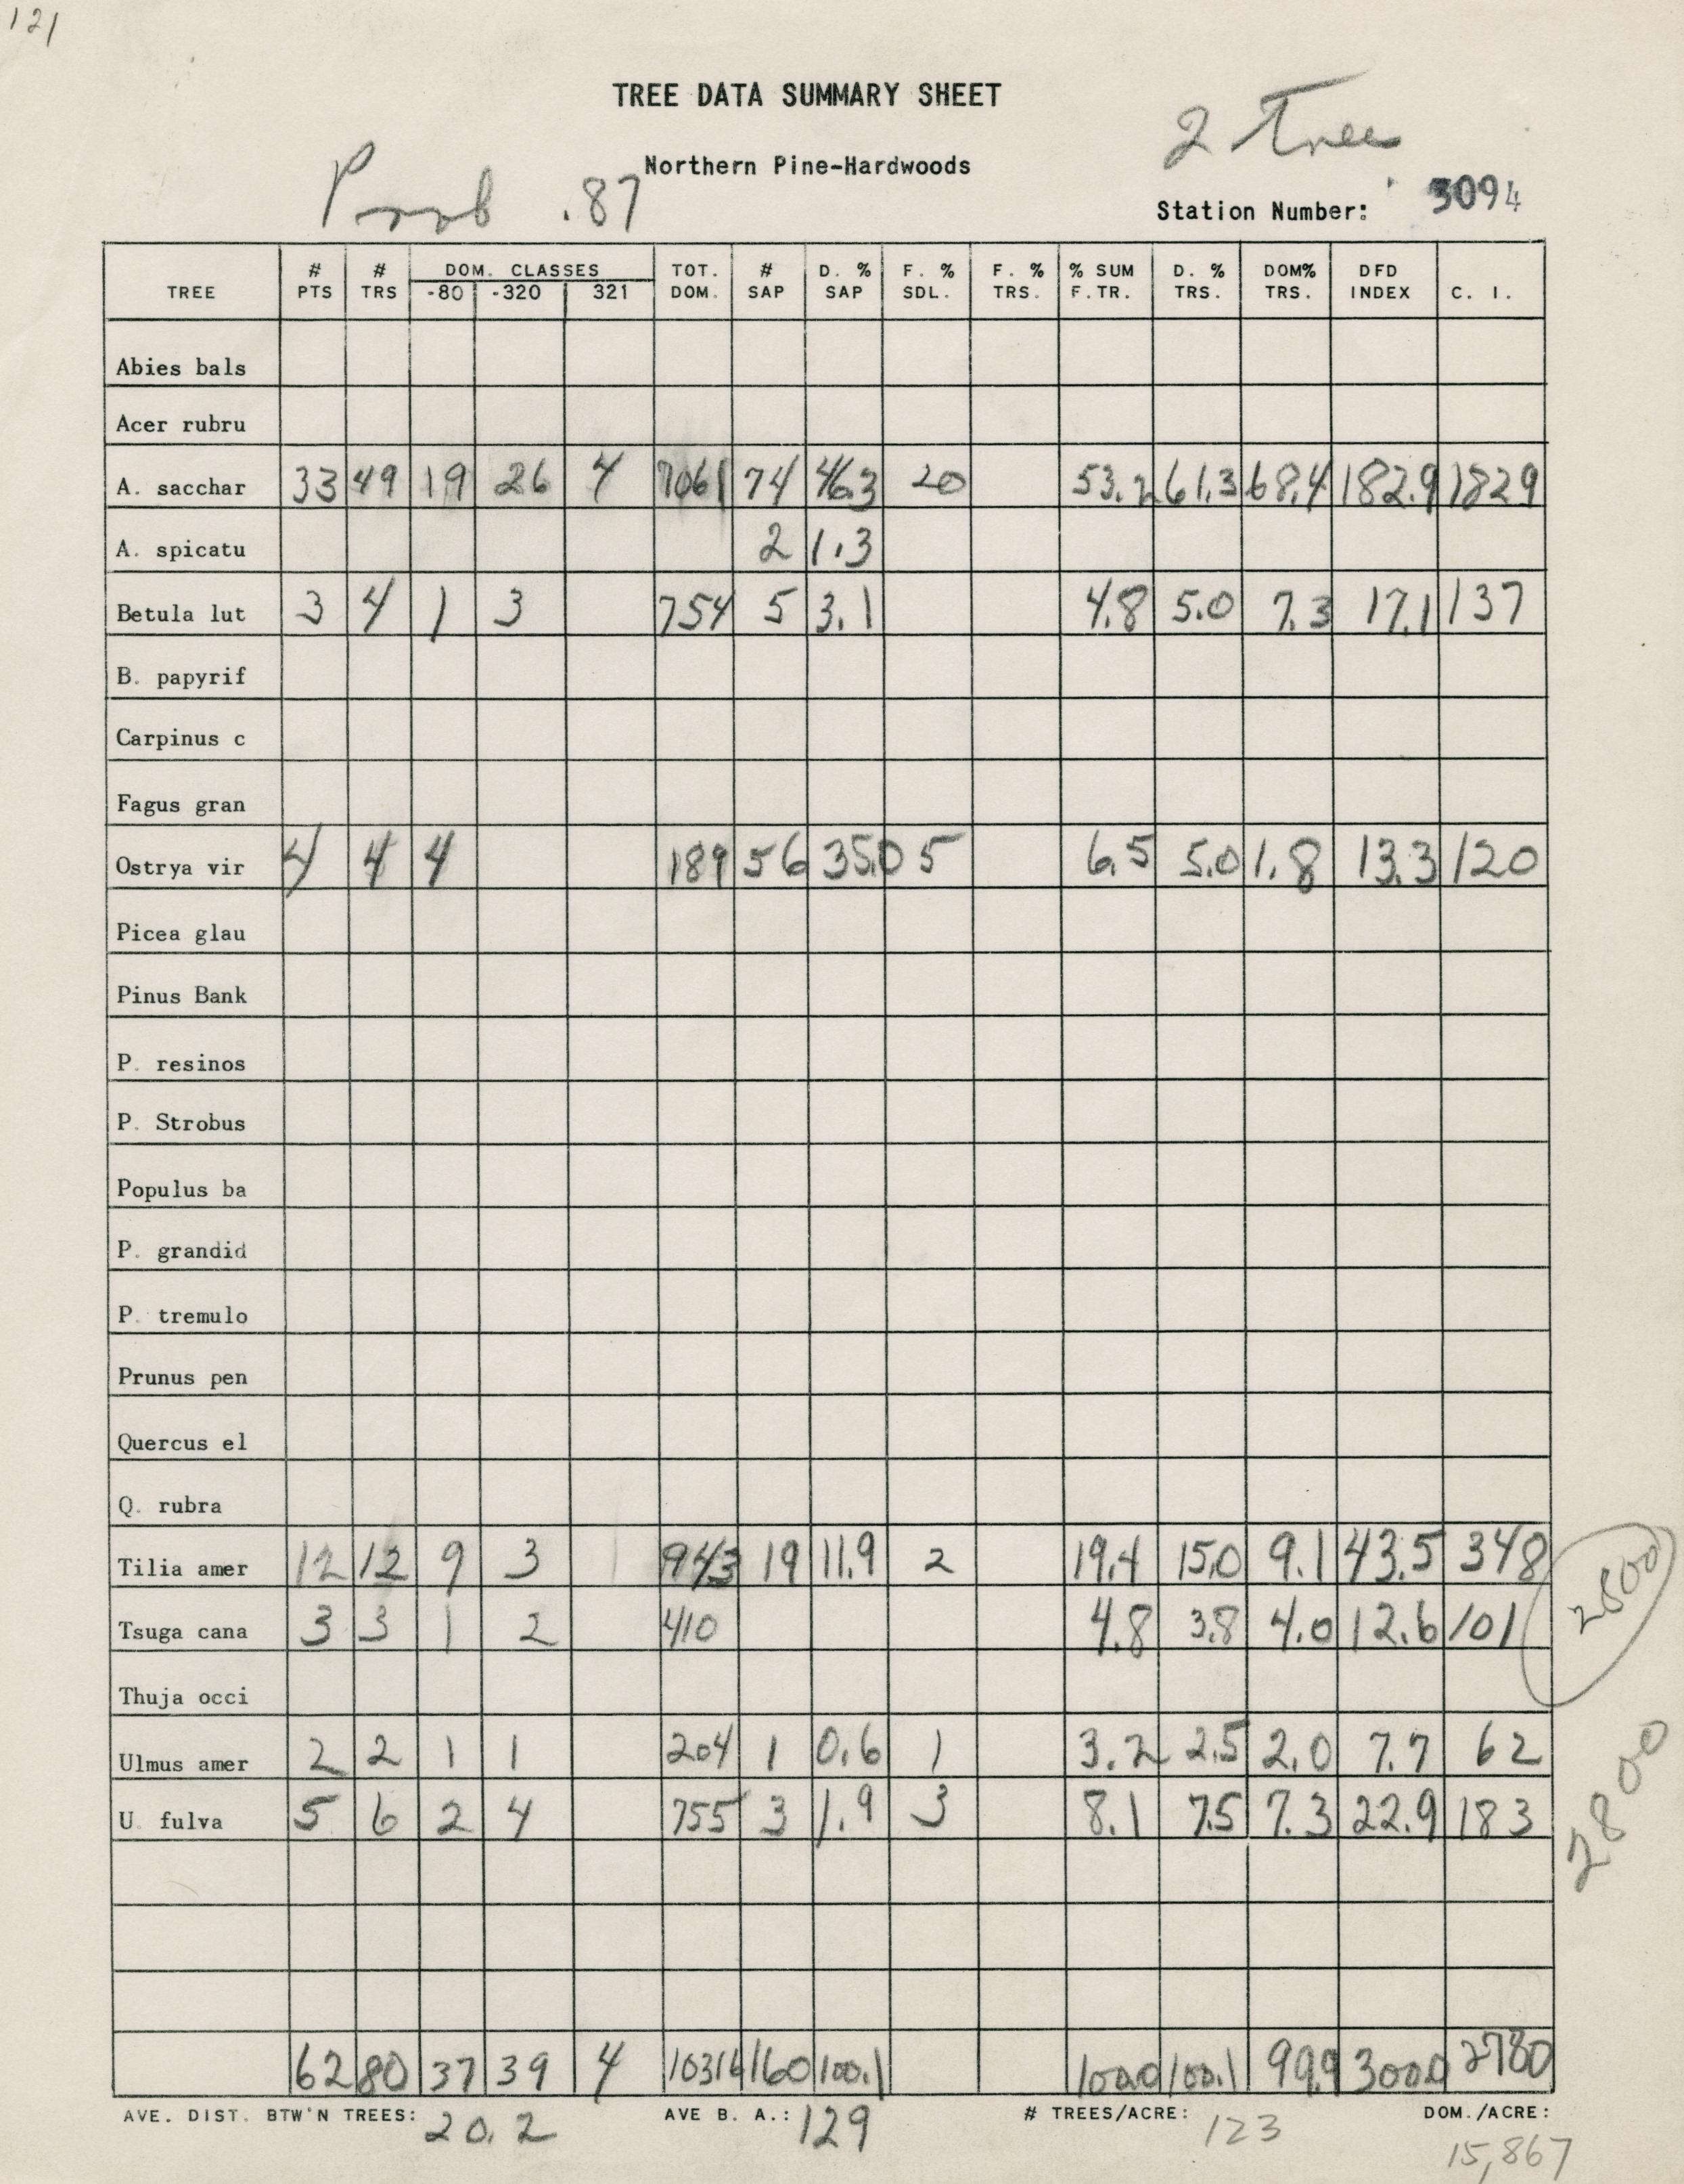 121
TREE DATA SUMMARY SHEET
2 Tree
Northern Pine-Hardwoods
Prob .87
Station Number: 3094
TREE # PTS # TRS DOM. CLASSES -80 -320 321 TOT. DOM. # SAP D. % SAP F. % SDL. F. % TRS. % SUM F. TR. D. % TRS. DOM% TRS. DFD INDEX C. I.
Abies bals
Acer rubru
A. sacchar 33 49 19 26 4 7061 74 46.3 20 53.2 61.3 68.4 182.9 1829
A. spicatu 2 1.3
Betula lut 3 4 1 3 754 5 3.1 4.8 5.0 7.3 17.1 137
B. papyrif
Carpinus c
Fagus gran
Ostrya vir 4 4 4 189 56 35.0 5 6.5 5.0 1.8 13.3 120
Picea glau
Pinus Bank
P. resinos
P. Strobus
Populus ba
P. grandid
P. tremulo
Prunus pen
Quercus el
Q. rubra
Tilia amer 12 12 9 3 943 19 11.9 2 19.4 15.0 9.1 43.5 348
2800
Tsuga cana 3 3 1 2 410 4.8 3.8 4.0 12.6 101
Thuja occi
Ulmus amer 2 2 1 1 204 1 0.6 1 3.2 2.5 2.0 7.7 62
2800
U. fulva 5 6 2 4 755 3 1.9 3 8.1 7.5 7.3 22.9 183
62 80 37 39 4 10316 160 100.1 100.0 100.1 99.9 300.0 2780
AVE. DIST. BTW'N TREES: 20.2 AVE B. A.: 129 # TREES/ACRE: 123 DOM./ACRE: 15,867